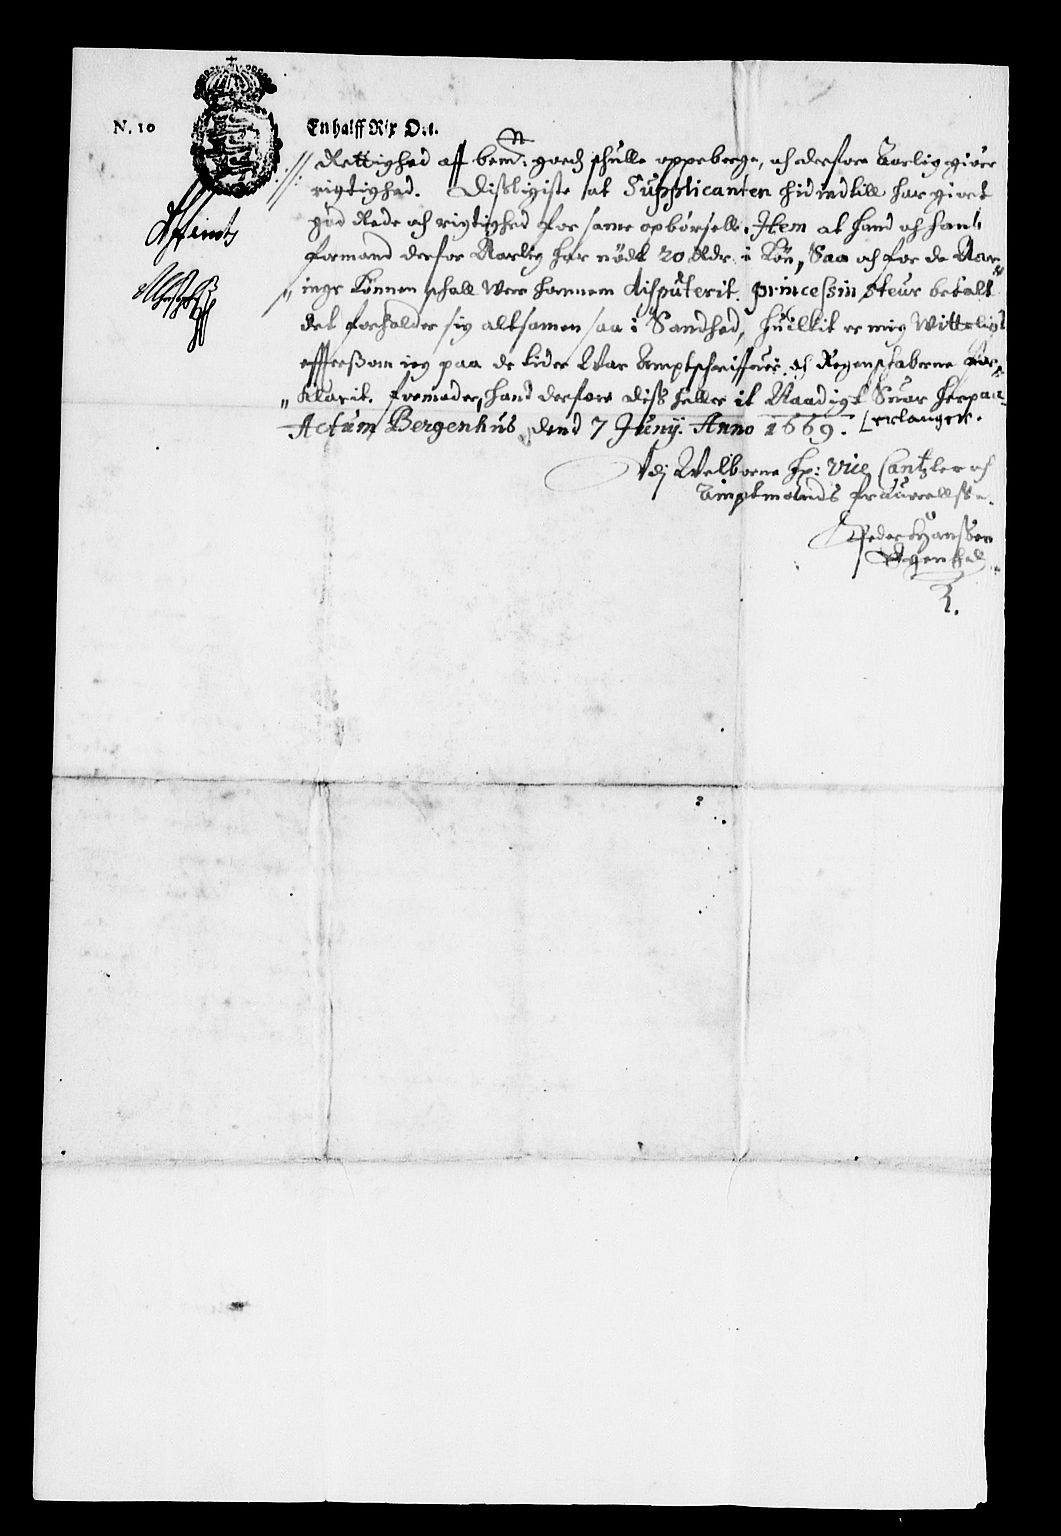 N. 10
En halff Rix Ort.
Rettighed aff bem: goeds schulle oppeberge, och derfore Aarlig giøre
rigtighed. Dissligiste at Supplicanten hid indtill har giort
god Rede och rigtighed for same opbörsell. Item at hand och hans
formand derfor Aarlig har nödt 20 Rdr i Lön, Saa och for de Aar
inge Lönnen schall were hannem disputerit. princessin Steur betalt
det forholder sig altsamen saa i Sandhed, huilkit er mig Witterligt
effterssom ieg paa de tider War Amptschriffuer, och Regenschaberne for-
klarit. formoder, hand derfore diss heller it Naadigt Suar herpaa
erlanger.
Actum Bergenhus, dend 7 Junij. Anno 1669.
Velborne Hr: Vice Cantzler och
Amptmands frauerellsse.
Peder Hanssen